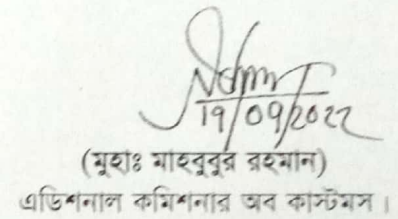 19/09/2022
(মুহাঃ মাহবুবুর রহমান)
এডিশনাল কমিশনার অব কাস্টমস।